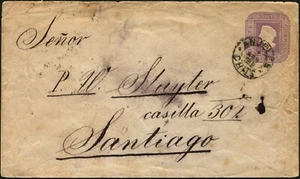 Señor
P. W. Stuyter
casilla 302
Santiago